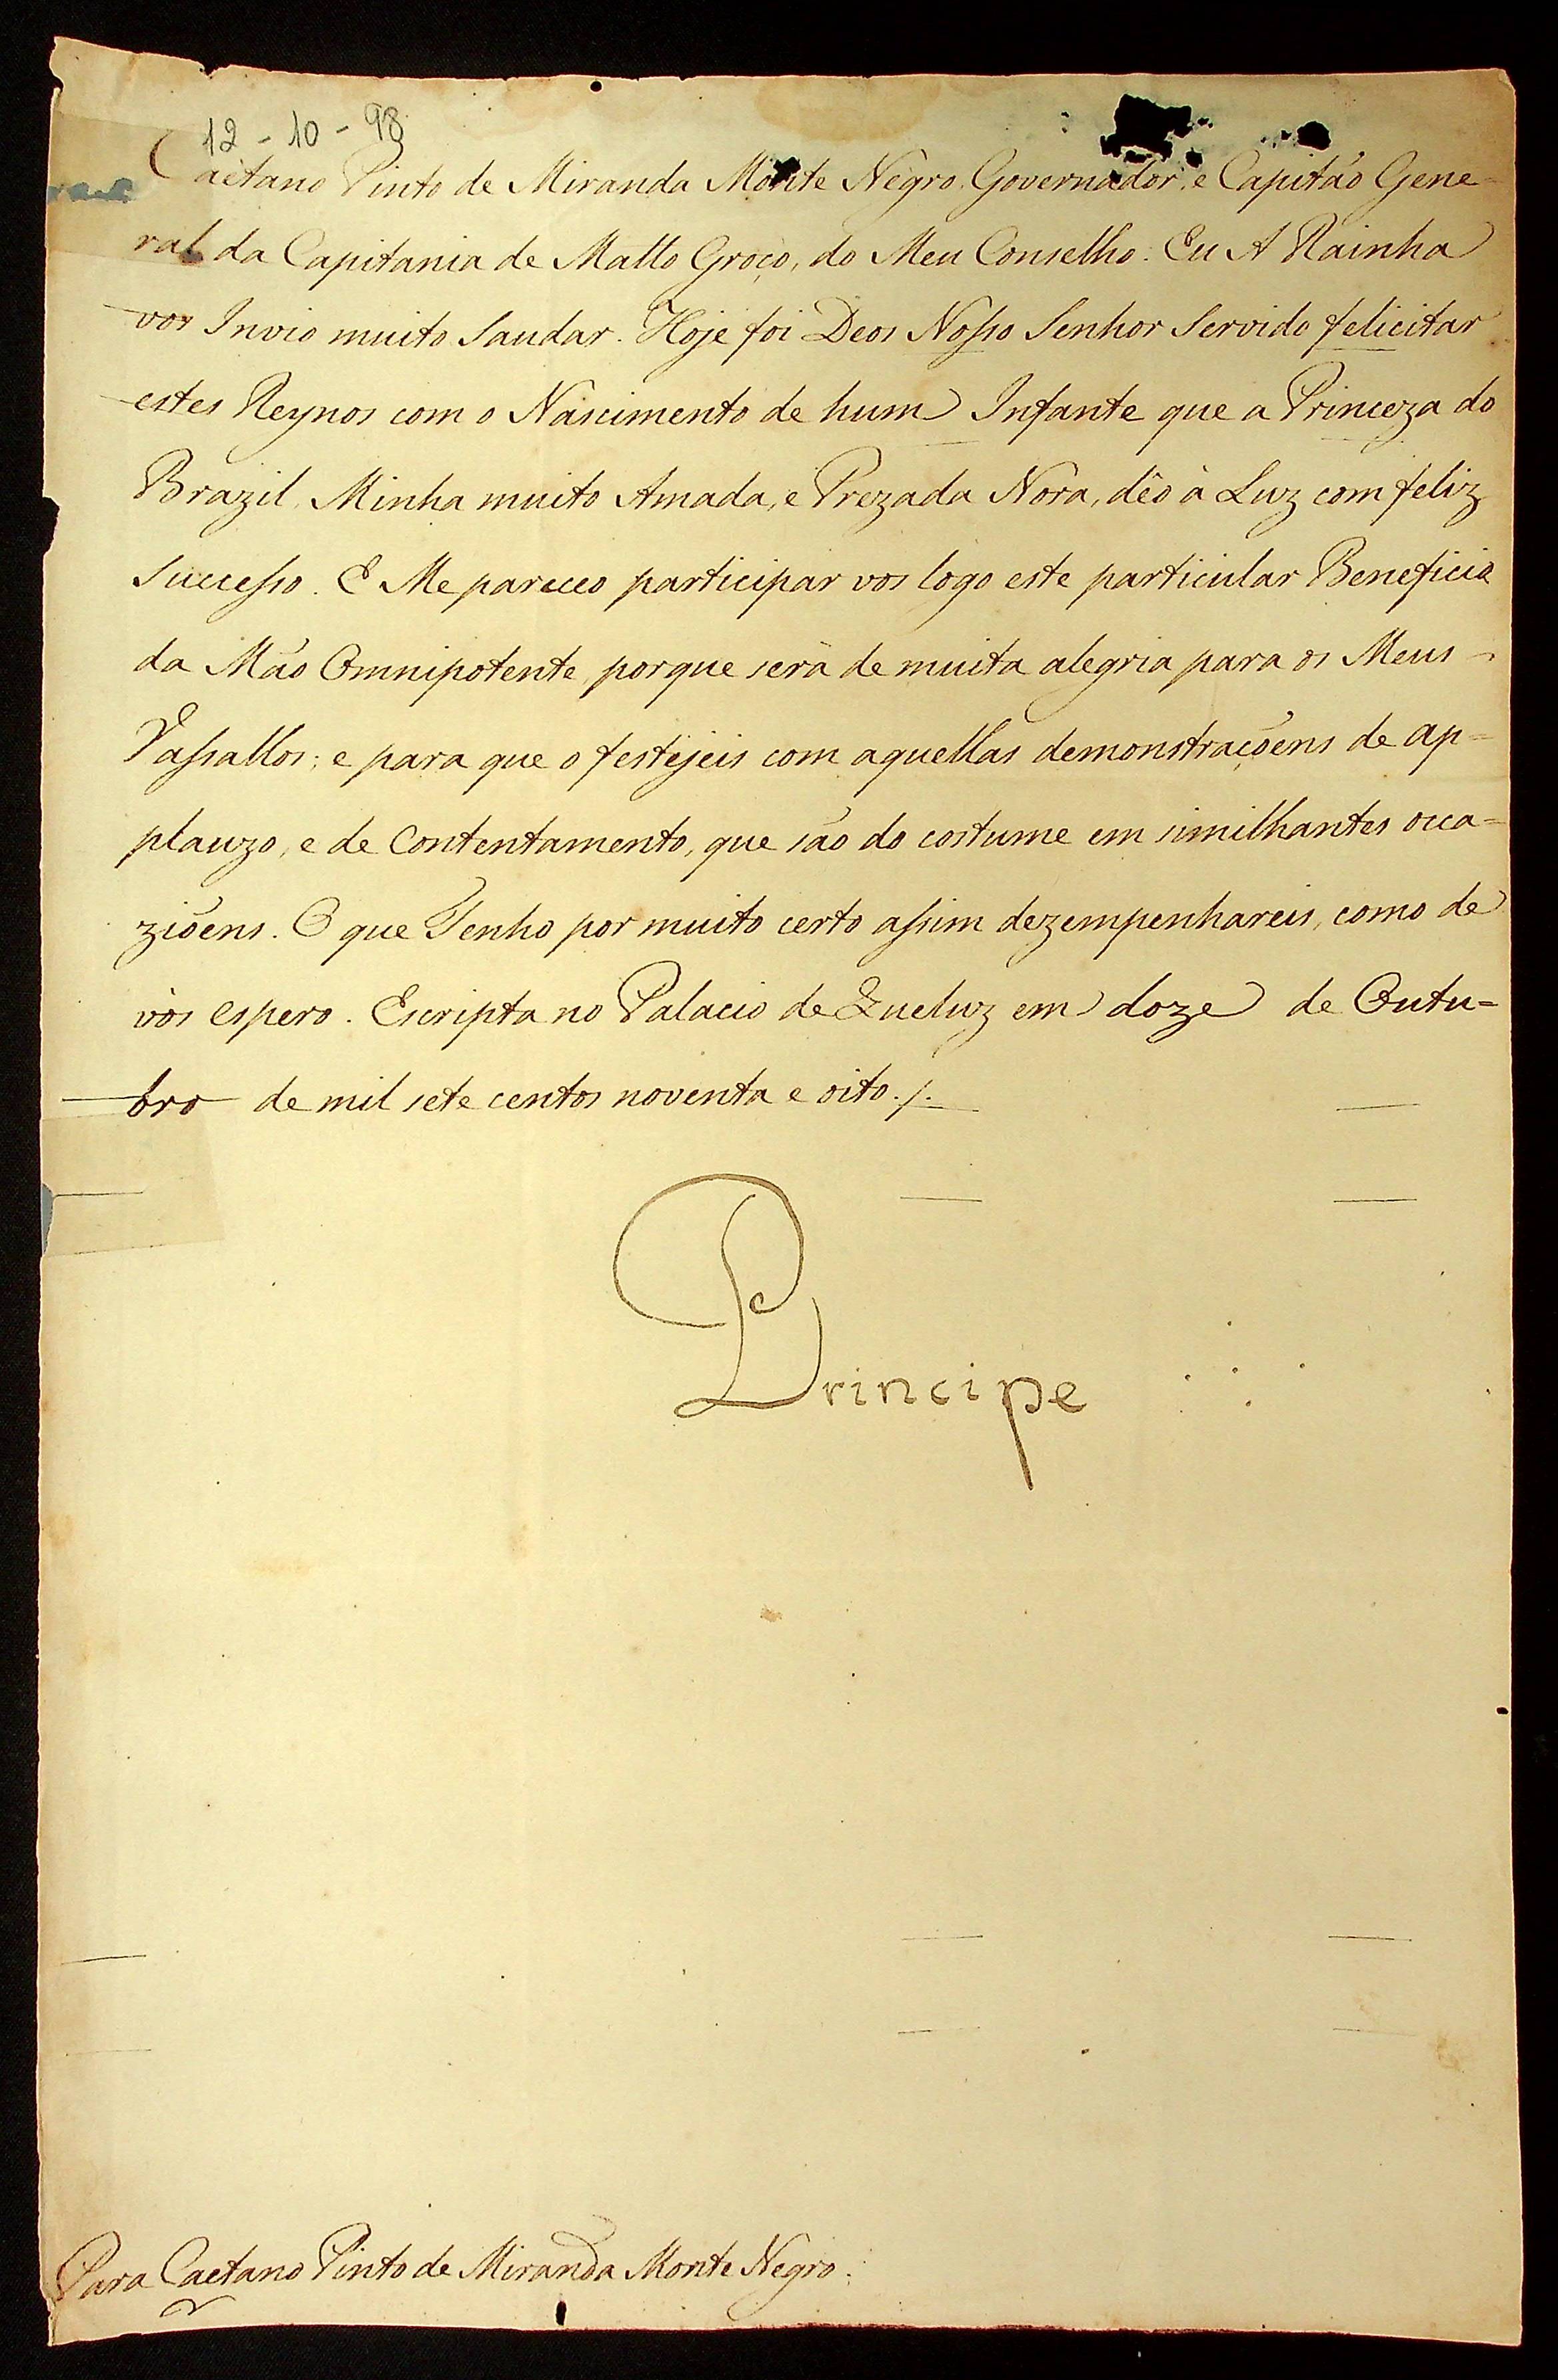 12 - 10 - 98
Caetano Pinto de Miranda Monte Negro, Governador, e Capitão Gene-
ral da Capitania de Matto Groço, do Meu Conselho: Eu A Rainha
vos Invio muito Saudar. Hoje foi Deos Nosso Senhor Servido felicitar
estes Reynos com o Nascimento de hum Infante que a Princeza do
Brazil, Minha muito Amada, e Prezada Nora, dêo à Luz com feliz
Successo. E Me pareceo participar vos logo este particular Beneficio
da Mão Omnipotente, porque serà de muita alegria para os Meus
Vassallos; e para que o festejeis com aquellas demonstraçõens de ap=
plauzo, e de Contentamento, que são do costume em similhantes occa=
ziõens. O que Tenho por muito certo assim dezempenhareis, como de
vòs espero. Escripta no Palacio de Queluz em doze de Outu=
bro de mil sete centos noventa e oito./.
Principe
Para Caetano Pinto de Miranda Monte Negro.